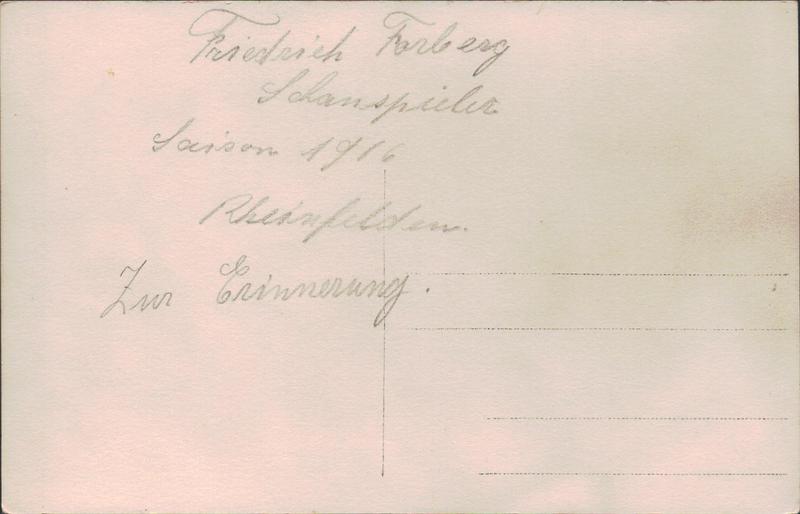 Friedrich Forberg
Schauspieler
Saison 1916
Rheinfelden.
Zur Erinnerung.